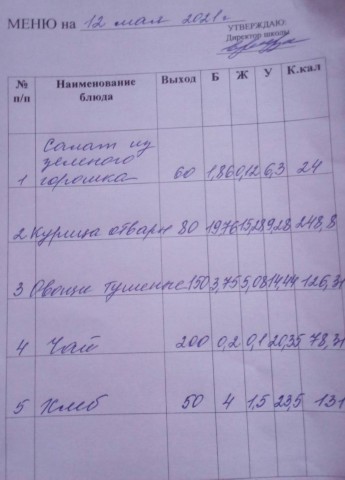 МЕНЮ на 12 мая 2021 г
УТВЕРЖДАЮ:
Директор школы
№ п/п Наименование блюда Выход Б Ж У К.кал
Салат из
зеленого
1 горошка 60 1,86 0,12 6,3 24
2 Курица отварн 80 19,76 15,28 9,28 248,8
3 Овощи тушеные 150 3,75 5,08 14,44 126,31
4 Чай 200 0,2 0,1 20,35 78,31
5 Хлеб 50 4 1,5 23,5 131